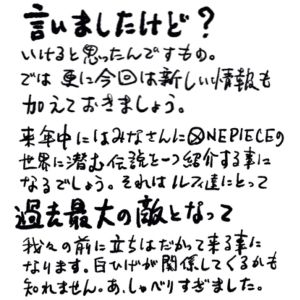 言いましたけど？
いけると思ったんですもの。
では更に今回は新しい情報も
加えておきましょう。
来年中にはみなさんにⓍNEPIECEの
世界に潜む伝説を一つ紹介する事に
なるでしょう。それはルフィ達にとって
過去最大の敵となって
我々の前に立ちはだかって来る事に
なります。白ひげが関係してくるかも
知れません。あ、しゃべりすぎました。